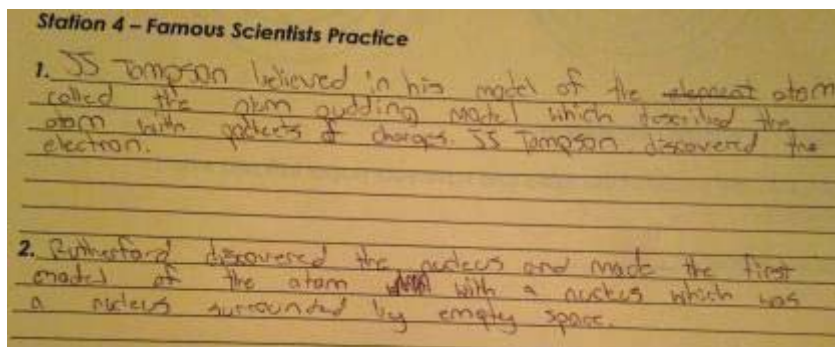 Station 4 – Famous Scientists Practice
1. JJ Tompson believed in his model of the atom
called the plum pudding model which described the
atom with pockets of charges. JJ Tompson discovered the
electron.
2. Rutherford discovered the nucleus and made the first
model of the atom with a nucleus which was
a nucleus surrounded by empty space.